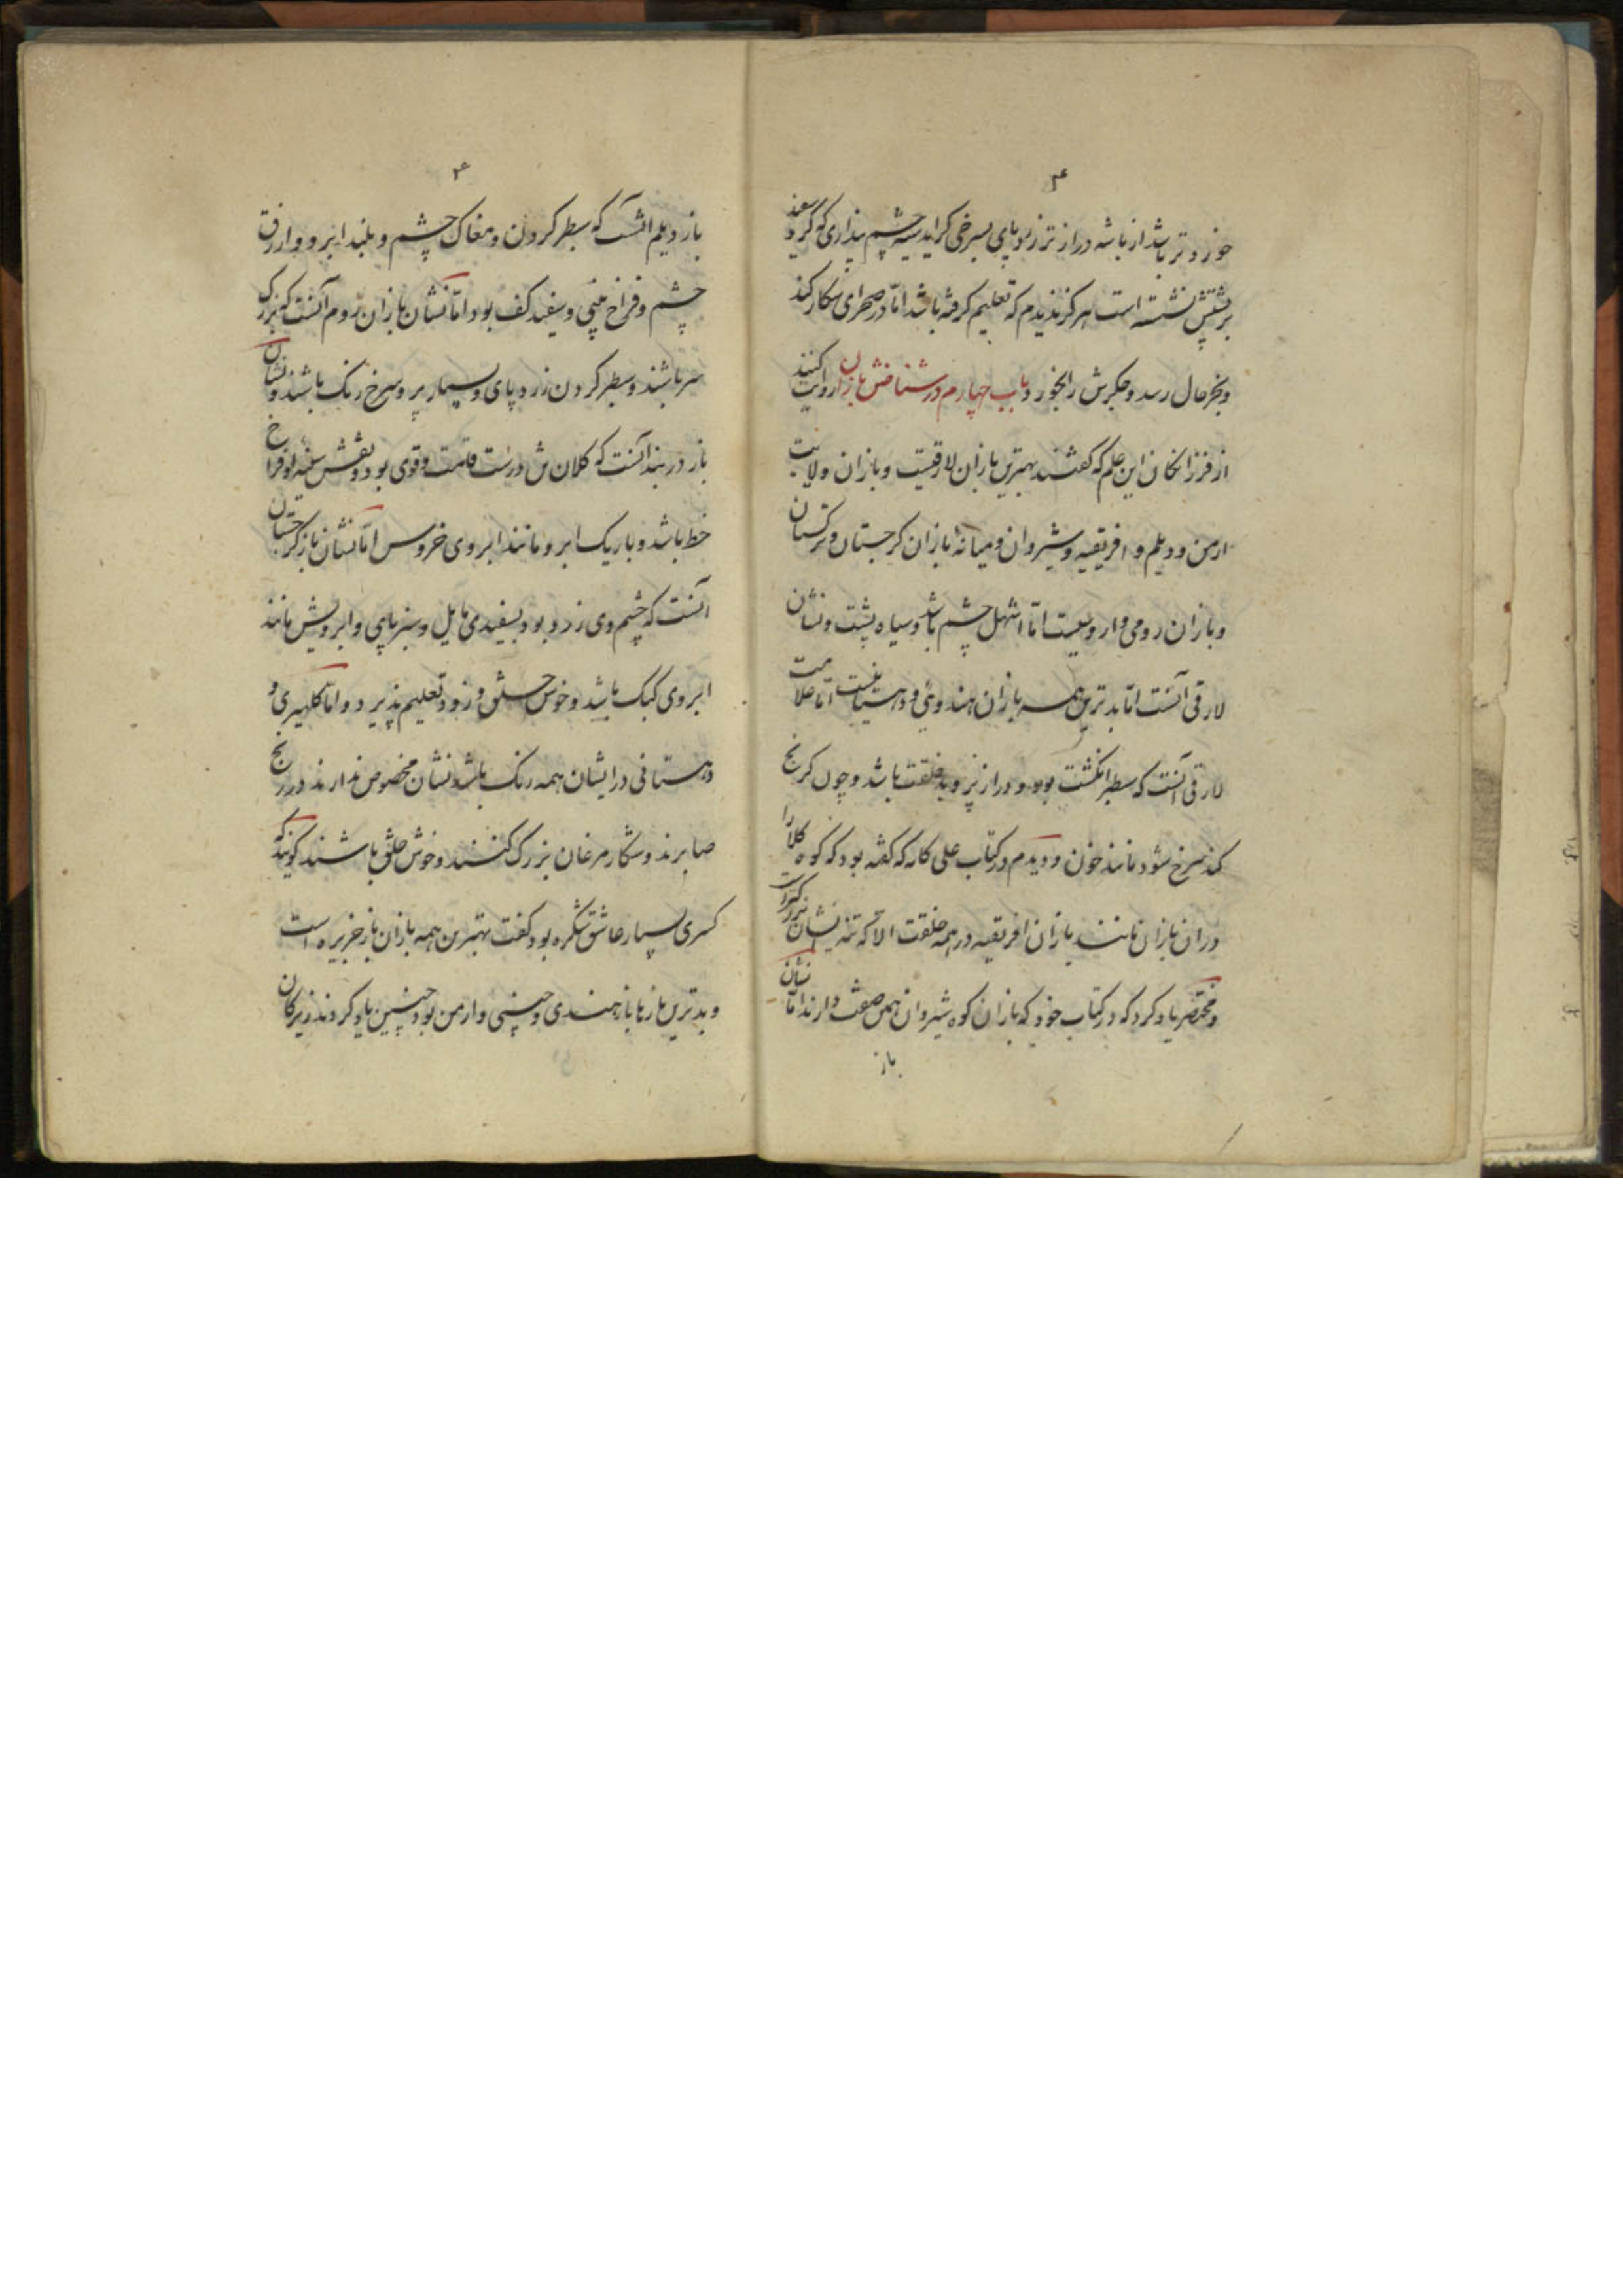 ۴
خوردتر باشد از باشه دراز تر زرد پای بسرخی کراید سیه چشم پنداری که کرد سفید
بر پشتش نشسته است هرکز ندیدم که تعلیم کرفته باشد اما در صحرای شکار کند
وبخرحال رسد و جکرش را بخورد باب چهارم در شناختن بازان روایت کنند
از فرزانکان این علم که کفتند بهترین بازان لارقیست و بازان ولایت
ارمن و دیلم و افریقیه و شیروان و میانهٔ بازان کرجستان و ترکستان
و بازان رومی و اما اشهل چشم باشد و سیاه پشت و نشان
لارقی آنست اما بدترین همه بازان هندوی و اما علامت
لارقی آنست که سطبر انکشت بود و دراز پر و بد خلقت باشد و چون کریج
کند سرخ شود مانند خون و دیدم در کتاب علی کامه که کفته بود که کوه کلار را
دران بازان مانند بازان افریقیه در همه خلقت الا که تنه ایشان بزرکتر است
و مختصر یاد کرد که در کتاب خود که بازان کوه شیروان همین صفت دارند اما نشان
باز
۴
باز دیلم آنست که سطبر کردن و مغاک چشم و بلند ابرو و ازرق
چشم و فراخ بینی و سفید کف بود اما نشان بازان روم آنست که بزرک
سر باشند و سطبر کردن زرد پای و بسیار پر و سرخ رنک باشند و نشان
باز دربند آنست که کلان ش درست قامت و قوی بود و نقش سینه او فراخ
خط باشد و باریک ابرو مانند ابروی خروس اما نشان باز کرجستان
آنست که چشم وی زرد بود بسفیدی مایل و سبز پای و ابرویش مانند
ابروی کبک باشد و خوش خلق و زود تعلیم پذیرد و اما کلهیری و
دهستانی در ایشان همه رنک باشد نشان مخصوص ندارند در رنج
صابرند و شکار مرغان بزرک کنند و خوش خلق باشند کویند که
کسری بسیار عاشق شکره بود کفت بهترین همه بازان باز جزیره است
و بدترین بازها باز هندی و چینی و ارمن بود چنین یاد کردند زیرکان